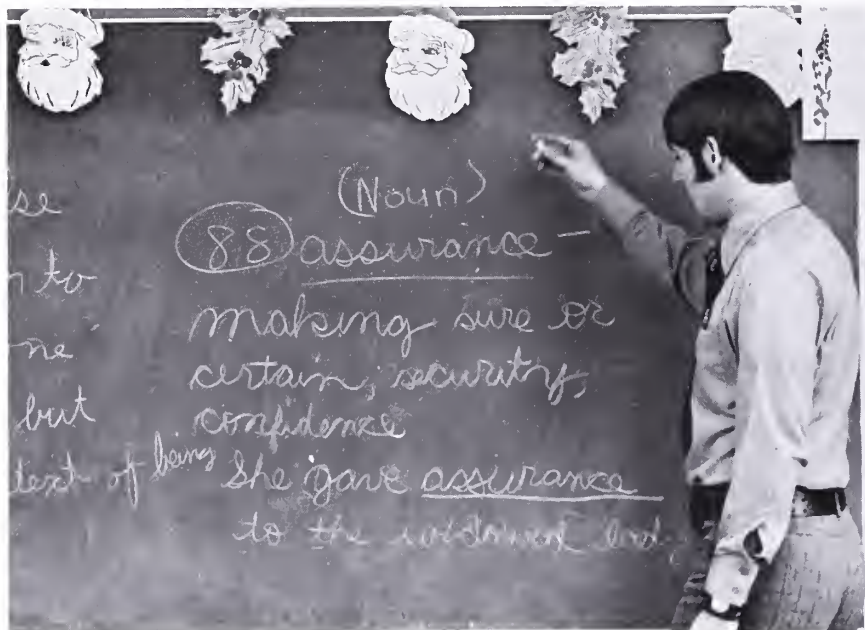 se
n to
ne
but
text of being
(Noun)
88 assurance –
making sure or
certain, security,
confidence
She gave assurance
to the